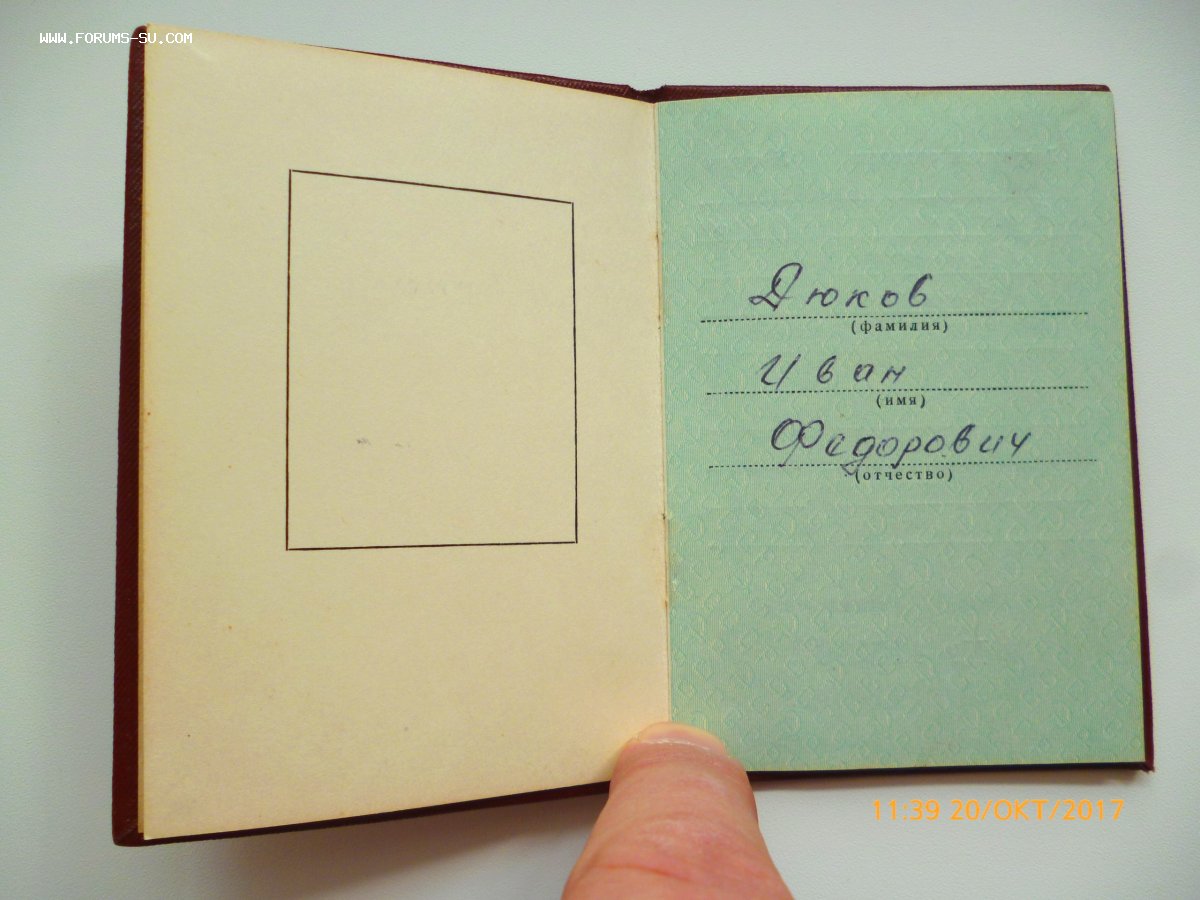 www.forums-su.com
Дюков
(фамилия)
Иван
(имя)
Федорович
(отчество)
11:39 20/ОКТ/2017